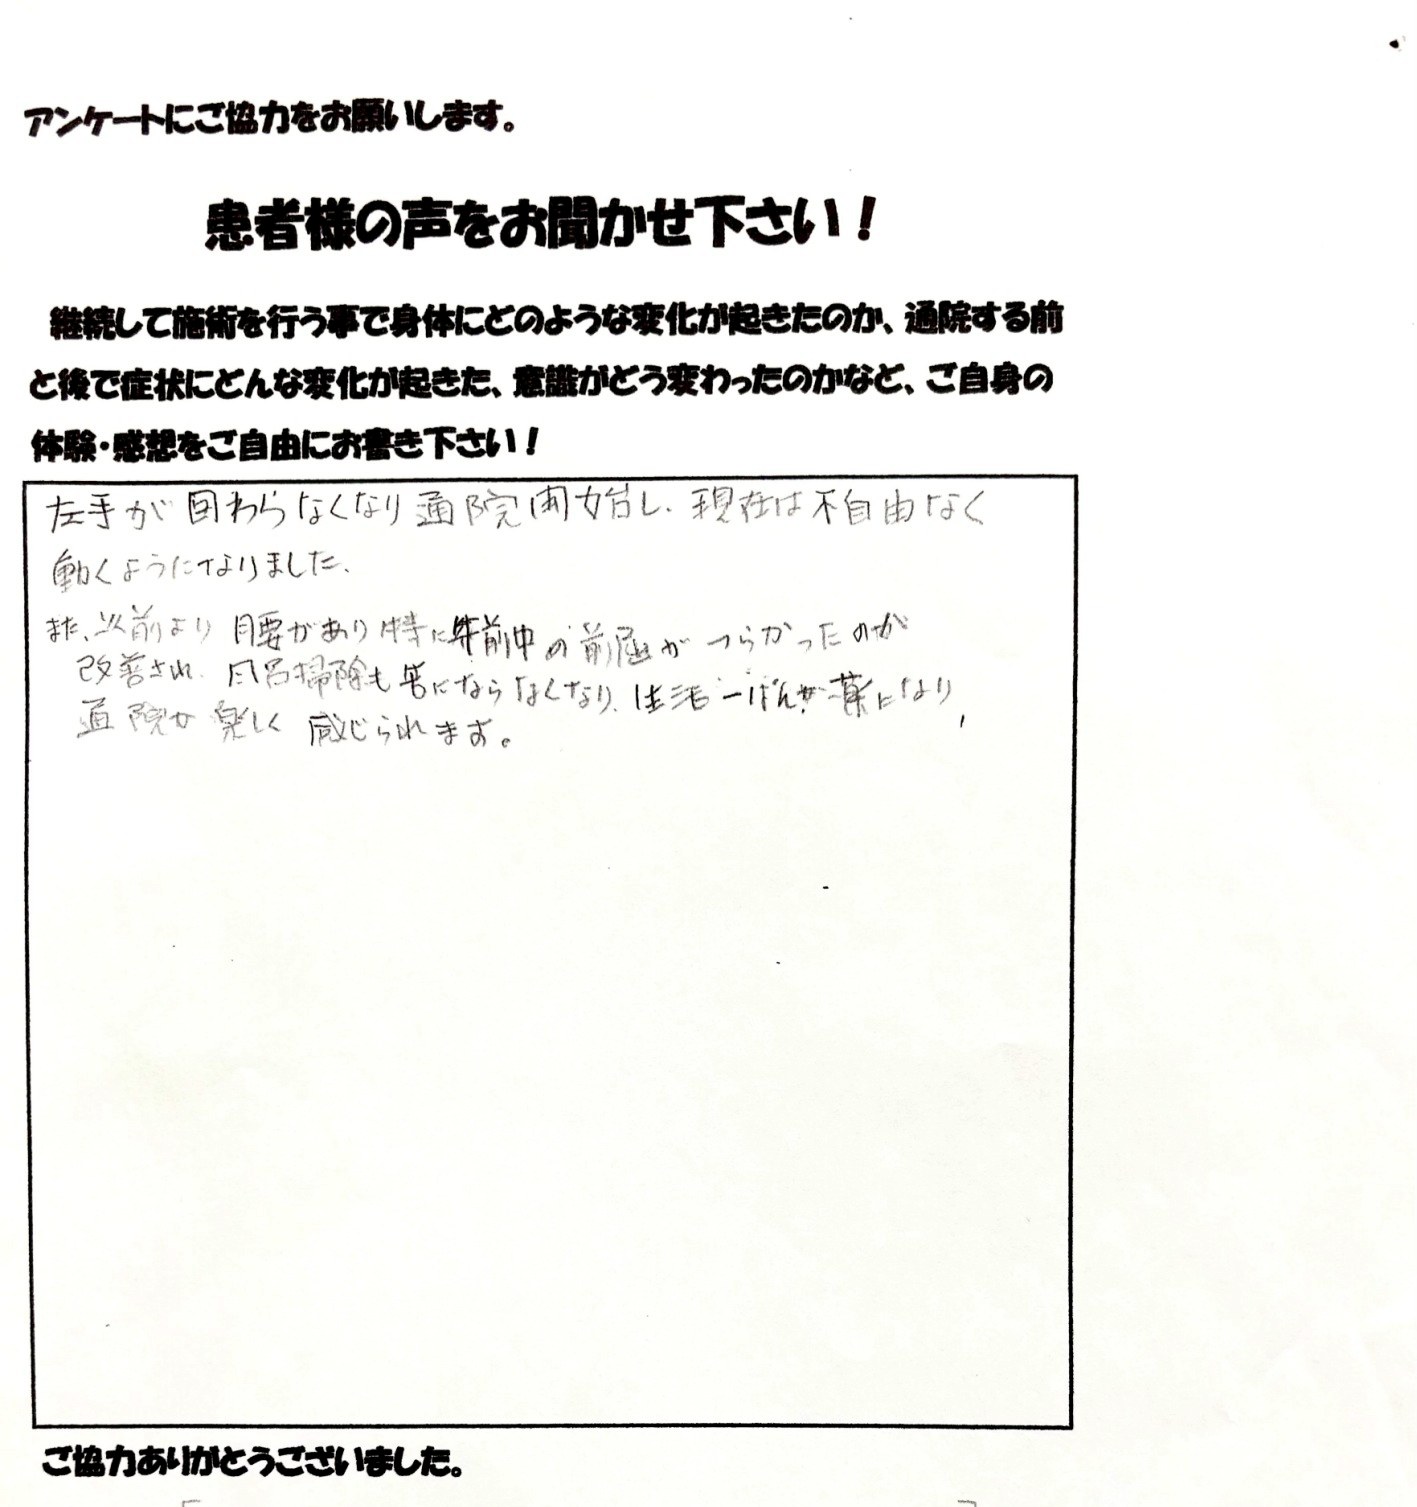 アンケートにご協力をお願いします。
患者様の声をお聞かせ下さい！
継続して施術を行う事で身体にどのような変化が起きたのか、通院する前
と後で症状にどんな変化が起きた、意識がどう変わったのかなど、ご自身の
体験・感想をご自由にお書き下さい！
左手が回わらなくなり通院開始し、現在は不自由なく
動くようになりました、
また、以前より腰があり特に午前中の前屈がつらかったのが
改善され、風呂掃除も苦にならなくなり、生活一ぱんが楽になり、
通院が楽しく感じられます。
ご協力ありがとうございました。